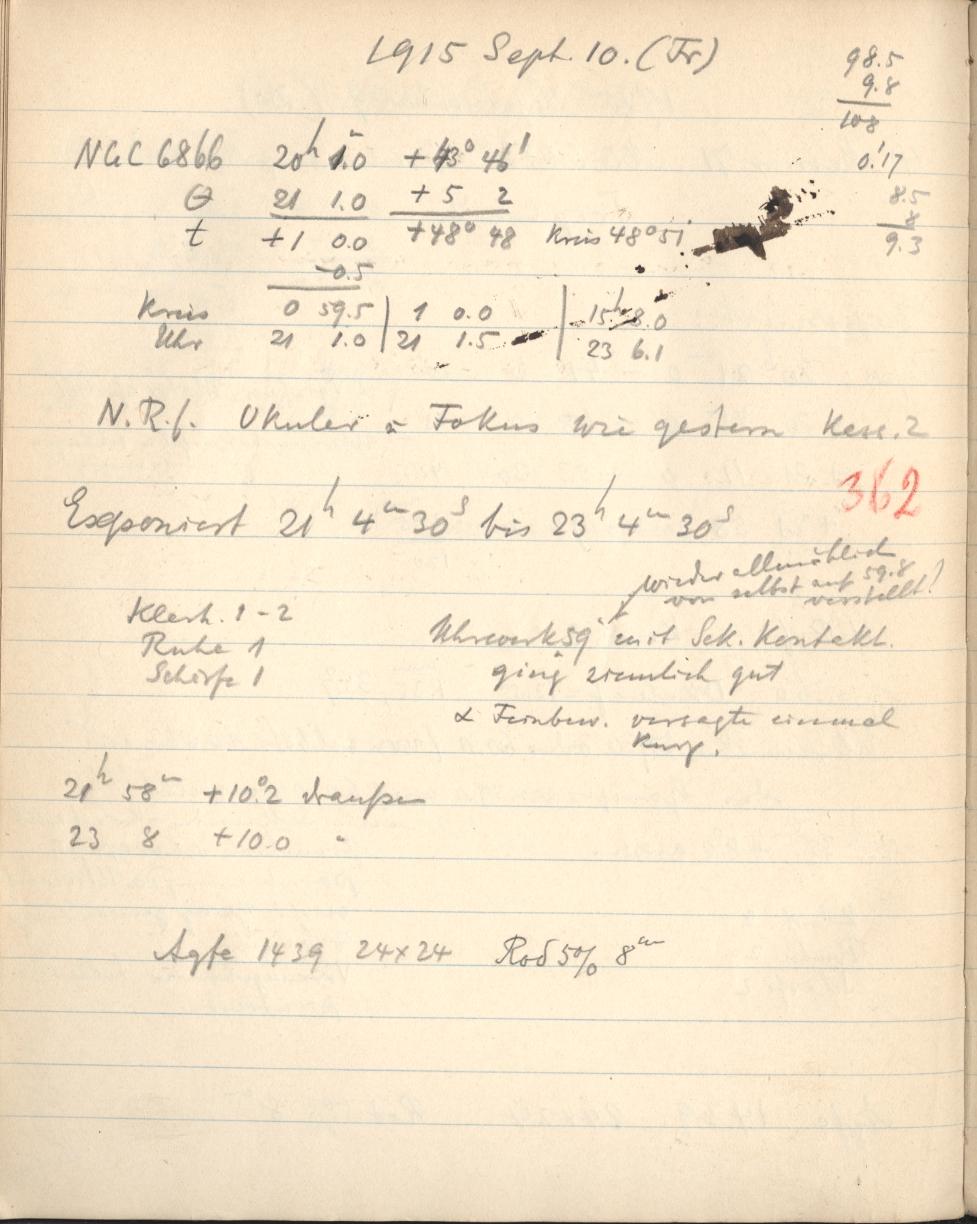 1915 Sept. 10. (Fr)
98.5
9.8
108
0.'17
8.5
8
9.3
NGC 6866 20h 1.0m +43° 46'
Θ 21 1.0 +5 2
t +1 0.0 +48° 48 Kreis 48° 51'
-0.5
Kreis 0 59.5 | 1 0.0 | 15h 8.0
Uhr 21 1.0 | 21 1.5 | 23 6.1
N.R.f. Okular u Fokus wie gestern Kass. 2
362
Exponiert 21h 4m 30s bis 23h 4m 30s
wieder allmählich
von selbst auf 59.8
verstellt!
Klarh. 1-2
Ruhe 1
Schärfe 1
Uhrwerk 59 mit Sek. Kontakt.
ging ziemlich gut
α Feinbew. versagte einmal
kurz.
21h 58m +10.°2 draußen
23 8 +10.0 "
Agfa 1439 24x24 Rod 5% 8m